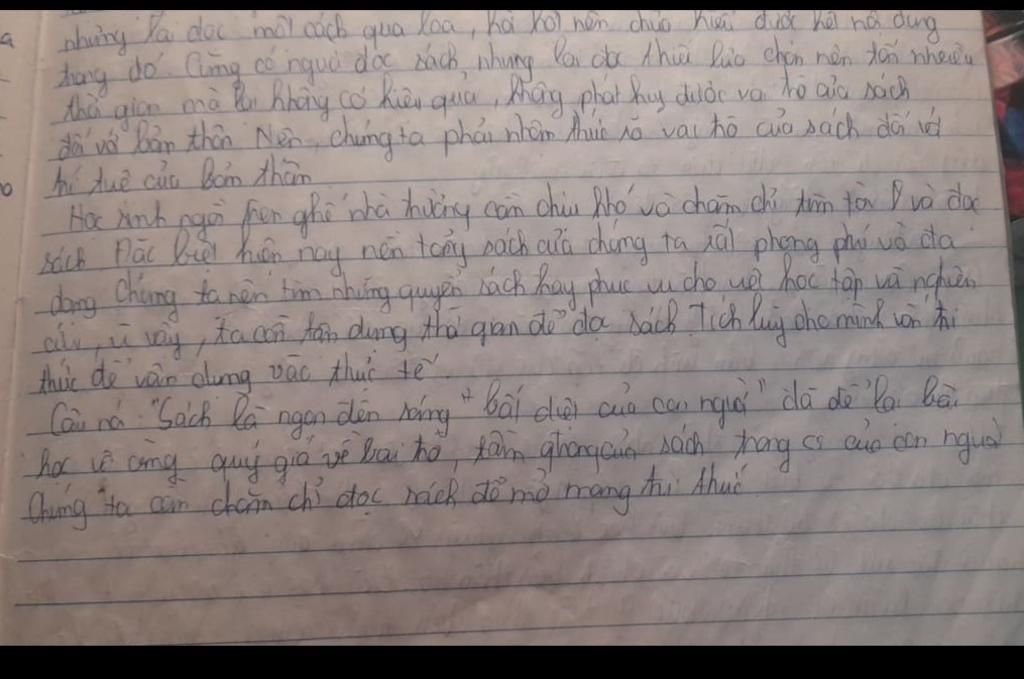 nhưng lại đọc một cách qua loa, hời hợt nên chưa hiểu được hết nội dung
trong đó. Cũng có người đọc sách nhưng lại đọc thiếu lựa chọn nên tốn nhiều
thời gian mà lại không có hiệu quả, không phát huy được vai trò của sách
đối với bản thân Nên, chúng ta phải nhận thức rõ vai trò của sách đối với
trí tuệ của bản thân
Học sinh ngồi trên ghế nhà trường cần chịu khó và chăm chỉ tìm tòi và đọc
sách Đặc biệt hiện nay nền tảng sách của chúng ta rất phong phú và đa
dạng Chúng ta nên tìm những quyển sách hay phục vụ cho việc học tập và nghiên
cứu, vì vậy, ta cần tận dụng thời gian để đọc sách Tích luỹ cho mình vốn tri
thức để vận dụng vào thực tế
Câu nói "Sách là ngọn đèn sáng bất diệt của con người" đã để lại bài
học vô cùng quý giá về vai trò, tầm của sách trong cs của con người
Chúng ta cần chăm chỉ đọc sách để mở mang tri thức